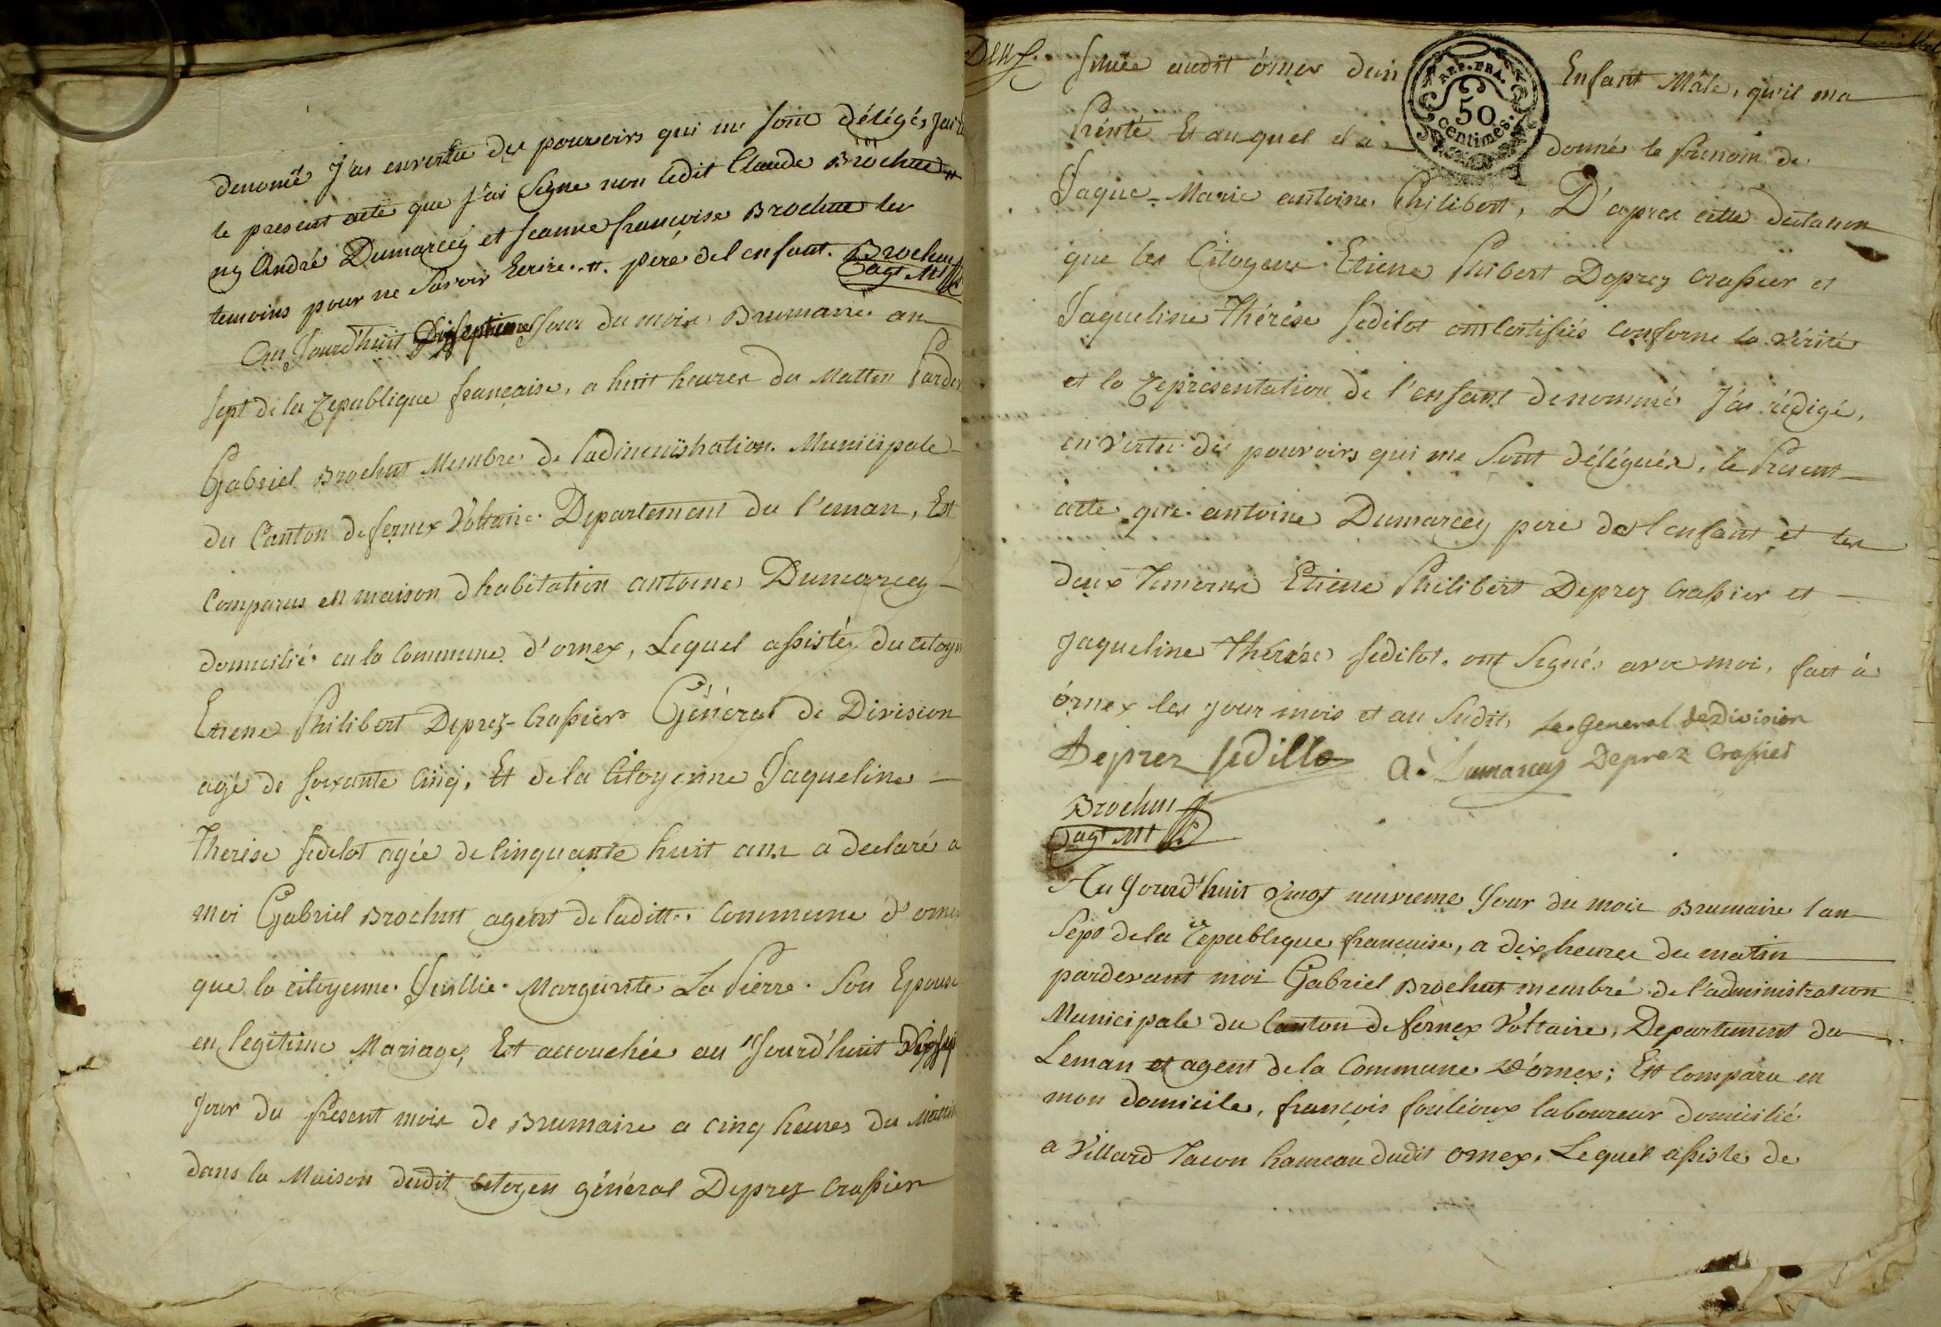 denomé J'ai envertue des pouvoirs qui me sont délégés, J'ai
le present acte que J'ai Signe non ledit Claude Brochut
ny André Dumarcey et Jeanne françoise Brochut les
temoins pour ne Savoir Ecrire .//. pere del enfant. Brochut
agt. Ml
Au Jourd'huit Dixseptieme Jour du mois Brumaire an
sept de la Republique française, a huit heures du Mattin Parde
Gabriel Brochut Membre de l'adminiistration Municipale
du Canton de fernex Voltaire Departement du l'eman, Est
Comparus en maison d'habitation antoine Dumarcey
domicilié en la Commune d'ornex, Lequel assistéz du citoye
Etiene Philibert Deprez-Crassier Général de Division
agé de soixante Cinq, Et de la Citoyenne Jaqueline
Therese sedelot agée de Cinquante huit ans a declaré a
moi Gabriel Brochut agent de laditte Commune d'orne
que la citoyenne Jullie Margurite La Pierre Son Epouse
en legitime Mariage, Est accouchée au Jourd'huit Dixsep
Jour du present mois de Brumaire a cinq heures du Mattin
dans la Maison dudit citoyen général Deprez Crassier
Deux.
situee audit órnex dun Enfant Mâle, qu'il ma
REP. FRA.
50
centimes.
Présnté Et auquel il a donné le Prenom de
Jaque-Marie antoine Philibert, D'apres cette declaration
que les Citoyens Etiene Philibert Deprez Crassier et
Jaqueline Thérése sedilot ont Certifiés conforme la vérité
et la representation de l'enfant denommé J'ai rédigé,
en vertue des pouvoirs qui me Sont délégués, le Present
acte que antoine Dumarcey pere de l'enfant et les
deux Temoins Etiene Philibert Deprez Crassier et
Jaqueline Thérése sedilot, ont Signés avec moi, fait à
órnex les jour mois et an Sudit,
Le General de Division
Deprez Sedillo A. Dumarcey Deprez Crassier
Brochut
agt Ml
Au Jourd'huit vingt neuvieme Jour du mois Brumaire l'an
Sept de la Republique francaise, a dix heures du matin
pardevant moi Gabriel Brochut membré de l'administration
Municipale du Canton de fernex Voltaire, Departement du
Leman et agent de la Commune d'órnex; Est Comparu en
mon domicile, françois foulioux laboureur domicilié
a Villard Tacon hameau dudit ornex, Lequel assiste de